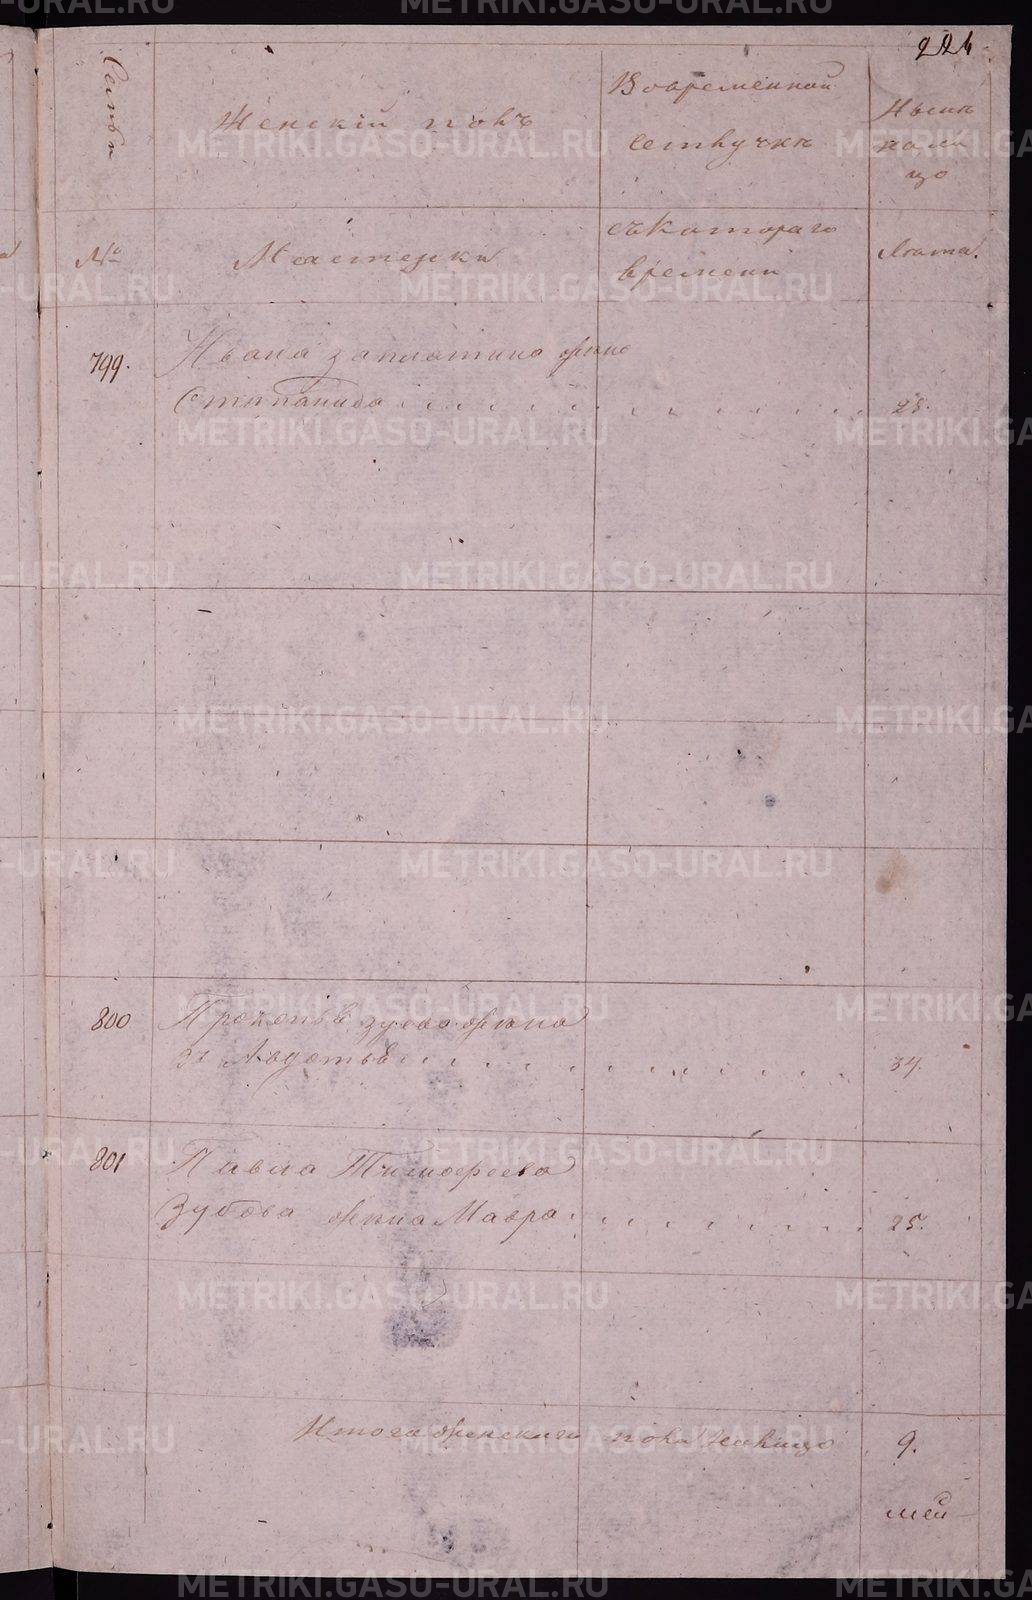 224
Семьи
Женскій полъ
Вовременной
отлучкѣ
Нынѣ
нали
цо
№
Мастерски
съ Котораго
времени
Лѣта.
799.
Ивана Заплатина жена
Степанида
28.
800
Прокопья Зубова жена
Авдотья
34.
801
Павла Тимофеева
Зубова жена Мавра
25.
Итого женского пола налицо
9.
METRIKI.GASO-URAL.RU